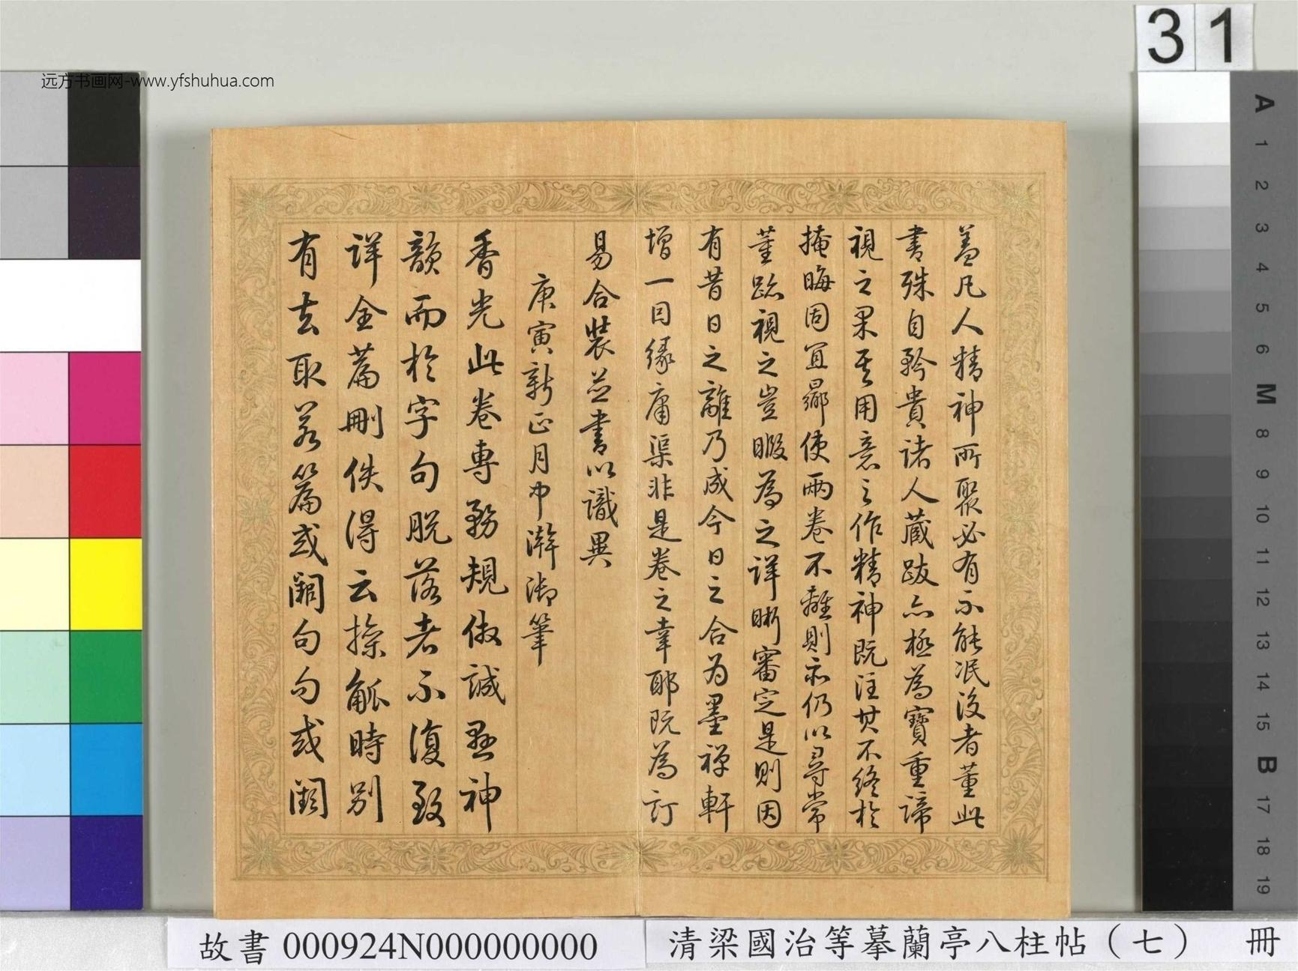 31
远方书画网-www.yfshuhua.com
蓋凡人精神所聚必有不能泯沒者董此
書殊自矜貴諸人藏跋亦極為寶重諦
視之果其用意之作精神既注其不終於
掩晦固宜嚮使兩卷不離則亦仍以尋常
董蹟視之豈暇為之詳晰審定是則因
有昔日之離乃成今日之合為墨禪軒
增一目緣庸渠非是卷之幸耶既為訂
易合裝並書以識異
庚寅新正月中澣御筆
香光此卷專務規倣誠懸神
韻而於字句脫落者不復致
詳全篇刪佚得云操觚時別
有去取若篇或闕句句或闕
A
1
2
3
4
5
6
M
8
9
10
11
12
13
14
15
B
17
18
19
故書 000924N000000000
清梁國治等摹蘭亭八柱帖（七） 冊